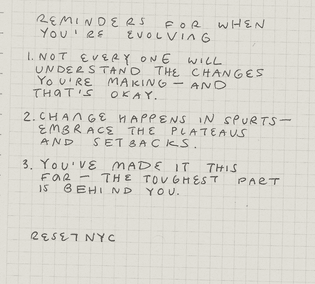 REMINDERS FOR WHEN
YOU'RE EVOLVING
1. NOT EVERY ONE WILL
UNDERSTAND THE CHANGES
YOU'RE MAKING — AND
THAT'S OKAY.
2. CHANGE HAPPENS IN SPURTS —
EMBRACE THE PLATEAUS
AND SETBACKS.
3. YOU'VE MADE IT THIS
FAR — THE TOUGHEST PART
IS BEHIND YOU.
RESET NYC